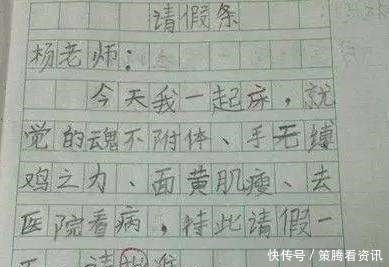 请假条
杨老师:
今天我一起床，就
觉的魂不附体、手无缚
鸡之力、面黄肌瘦、去
医院看病，特此请假一
天 请批准
快传号 / 策腾看资讯